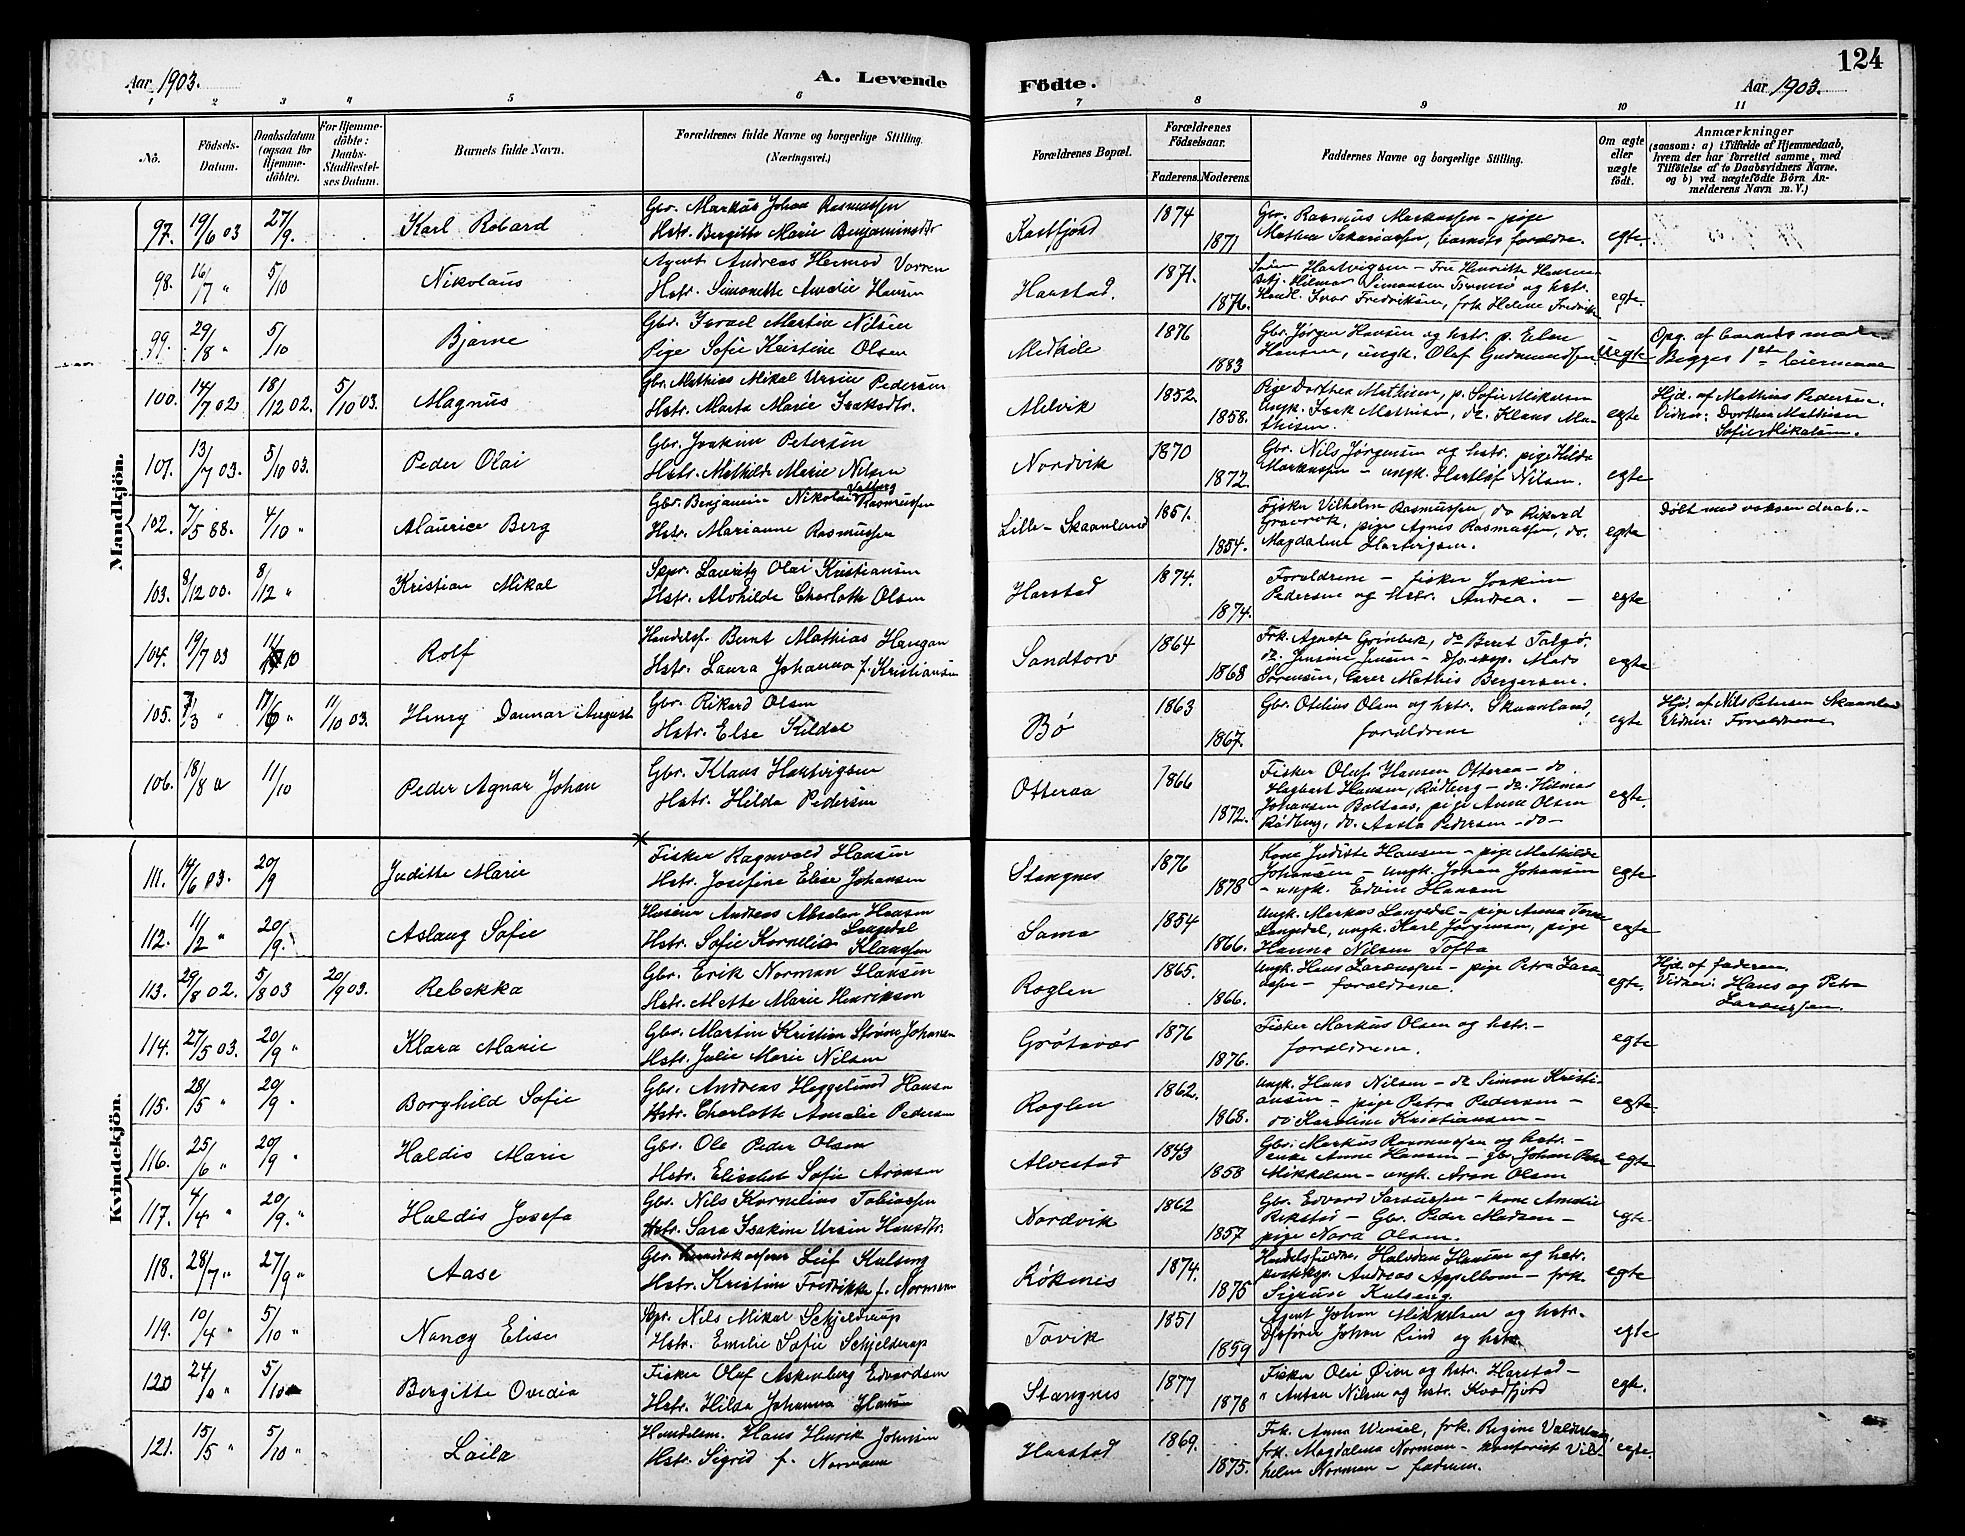 124
Aar 1903.
A. Levende Födte.
Aar 1903.
1 2 3 4 5 6 7 8 9 10 11
No.
Födsels-Datum.
Daabsdatum (ogsaa for Hjemmedöbte).
For Hjemmedöbte: Daabs-Stadfæstelses Datum.
Barnets fulde Navn.
Forældrenes fulde Navne og borgerlige Stilling. (Næringsvei.)
Forældrenes Bopæl.
Forældrenes Födselsaar.
Faderens. Moderens.
Faddernes Navne og borgerlige Stilling.
Om ægte eller uægte født.
Anmærkninger
(saasom: a) i Tilfælde af Hjemmedaab, hvem der har forrettet samme, med Tilföielse af to Daabsvidners Navne, og b) ved uægtefödte Börn Anmelderens Navn m. V.)
Mandkjön.
97. 19/6 03 27/9. Karl Robard
Gbr. Markus Johan Rasmussen
Hstr. Bergitte Marie Benjaminsdtr
Kastfjord 1874 1871
Gbr. Rasmus Markussen – pige
Mathea Sakariassen, barnets forældre. egte
98. 16/7 " 5/10 Nikolaus
Agent Andreas Hermod Vorren
Hstr. Simonette Amalie Hansen
Harstad. 1871. 1876.
Hartvigsen – Fru Henriette Hansen
Hilmar Simonsen Tromsø og hstr.
Handl. Ivar Fredriksen, frk Helene Fredriks egte.
99. 29/8 " 5/10 Bjarne
Gbr. Israel Martin Nilsen
Pige Sofie Kristine Olsen
Medkile 1876 1883
Gbr. Jørgen Hansen og hstr. p. Elen
Hansen, ungk. Olaf Gudmundsen uegte
Opg. af barnets mor
Begges 1ste leiermaal
100. 14/7 02 18/12 02. 5/10 03. Magnus
Gbr. Mathias Mikal Ursin Pedersen
Hstr. Marta Marie Isaksdtr.
Melvik 1852. 1858.
Pige Dorthea Mathisen, p. Sofie Mikalsen
ungk. Isak Mathisen, do. Klaus Ma-
thisen. egte
Hjd. af Mathias Pedersen.
Vidner: Dorthea Mathisen
Sofie Mikalsen.
101. 13/7 03. 5/10 03. Peder Olai
Gbr. Joakim Petersen
Hstr. Mathilde Marie Nilsen
Nordvik 1870 1872.
Gbr. Nils Jørgensen og hstr. pige Hilda
Markussen – ungk. Hartlof Nilsen. egte
102. 7/5 88. 4/10 " Maurice Berg
Gbr. Benjamin Nikolai Rasmussen
Hstr. Marianne Rasmussen
Lille-Skaanland 1851. 1854.
Fisker Vilhelm Rasmussen, do Rikard
pige Agnes Rasmussen, do.
Magdalene Hartvigsen. egte
Døbt med voksen daab.-
103. 8/12 00. 8/12 " Kristian Mikal
Skpr. Lauritz Olai Kristiansen
Hstr. Alvhilde Charlotte Olsen
Harstad 1874. 1874.
Forældrene – fisker Joakim
Pedersen og hstr. Andrea. – egte
104. 19/7 03 11/10 Rolf
Handelsf. Bernt Mathias Haugan
Hstr. Laura Johanna f. Kristiansen
Sandtorv 1864 1868
Frk. Agnete Grönbek, do Beret Talgø,
do. Jensine Jensen – Mads
Sørensen, Mathis Bergersen. egte
105. 7/3 " 17/6 " 11/10 03. Henry Danmar August
Gbr. Rikard Olsen
Hstr. Else Kildal
Bø 1863 1867.
Gbr. Otelius Olsen og hstr. Skaanland,
forældrene egte
Hjd. af Nils Petersen Skaanland
Vidner: Forældrene
106. 18/8 11/10 Peder Agnar Johan
Gbr. Klaus Hartvigsen
Hstr. Hilda Pedersen
Otteraa 1866 1872.
Fisker Oluf Hansen Otteraa – do.
Hagbart Hansen, Rødberg – do. Hilmar
Johansen Baltsas, pige Anna Olsen
Rødberg, do. Aasta Pedersen – do – egte.
Kvindekjön.
111. 14/6 03. 20/9 Juditte Marie
Fisker Ragnvald Hansen
Hstr. Josefine Elise Johansen
Stangnes 1876 1878
Kone Juditte Hansen – pige Mathilde
Johansen – ungk. Johan Johansen
– ungk. Edvin Hansen egte
112. 11/2 " 20/9. Aslaug Sofie
Andreas Absalon Hansen
Langedal
Hstr. Sofie Kornelia Klaussen
Sama 1854 1866.
Ungk. Markus Langedal – pige Anna
Langedal, ungk. Karl Jørgensen, pige
Hanna Nilsen Tofta egte
113. 29/8 02. 5/8 03 20/9 03. Rebekka
Gbr. Erik Norman Hansen
Hstr. Mette Marie Henriksen
Roglen 1865. 1866.
Ungk. Hans Larsussen – pige Petra Lars-
ussen – forældrene. egte.
Hjd. af faderen.
Vidner: Hans og Petra
Larsussen.
114. 27/5 03. 20/9 " Klara Marie
Gbr. Martin Kristian Strøm Johansen
Hstr. Julie Marie Nilsen
Grøtavær 1876 1876.
Fisker Markus Olsen og hstr. –
forældrene. egte
115. 28/5 " 20/9 " Borghild Sofie
Gbr. Andreas Heggelund Hansen
Hstr. Charlotte Amalie Pedersen
Roglen 1862. 1868.
Ungk. Hans Nilsen – do Simon Kristi-
ansen – pige Petra Pedersen –
do Karoline Kristiansen – egte.
116. 25/6 " 20/9 " Haldis Marie
Gbr. Ole Peder Olsen
Hstr. Elisabet Sofie Aronsen
Alvestad 1843 1858
Gbr. Markus Rasmussen og hstr. –
enke Anne Hansen – gbr. Johan Peter
Mikkelsen – ungk. Aron Olsen egte
117. 4/4 " 20/9. " Haldis Josefa
Gbr. Nils Kornelius Tobiassen
Hstr. Sara Isakine Ursin Hansdtr.
Nordvik 1862 1857
Gbr. Edvard Larsussen – kone Amalie
Rikstad – Gbr. Peder Madsen –
pige Nora Olsen. egte.
118. 28/7 " 27/9 " Aase
Gbr. Leif Kulseng
Hstr. Kristine Fredrikke f. Normann
Røkenes 1874. 1875
Handelsfuldm. Halvdan Hansen og hstr.
posteksp. Andreas Appelbom – frk.
Signuse Kulseng egte
119. 10/4 " 5/10 " Nancy Elise
Skpr. Nils Mikal Schjelderup
Hstr. Emilie Sofie Schjelderup
Tovik 1851 1859
Agent Johan Mikkelsen og hstr.
Johan Lind og hstr. egte
120 24/ " 5/10 Bergitte Ovedia
Fisker Oluf Askenberg Edvardsen
Hstr. Hilda Johanna Hansen
Stangnes 1877 1878
Fisker Ole Øien og hstr. Harstad –
" Anton Nilsen og hstr. Kvædfjord egte.
121. 15/5 " 5/10 " Laila
Handelsm. Hans Henrik Johnsen
Hstr. Sigrid f. Normann
Harstad 1869. 1875.
Frk. Anna Wensel, frk. Regine
frk. Magdalena Norman – kontorist Vil-
helm Norman – faderen. egte.